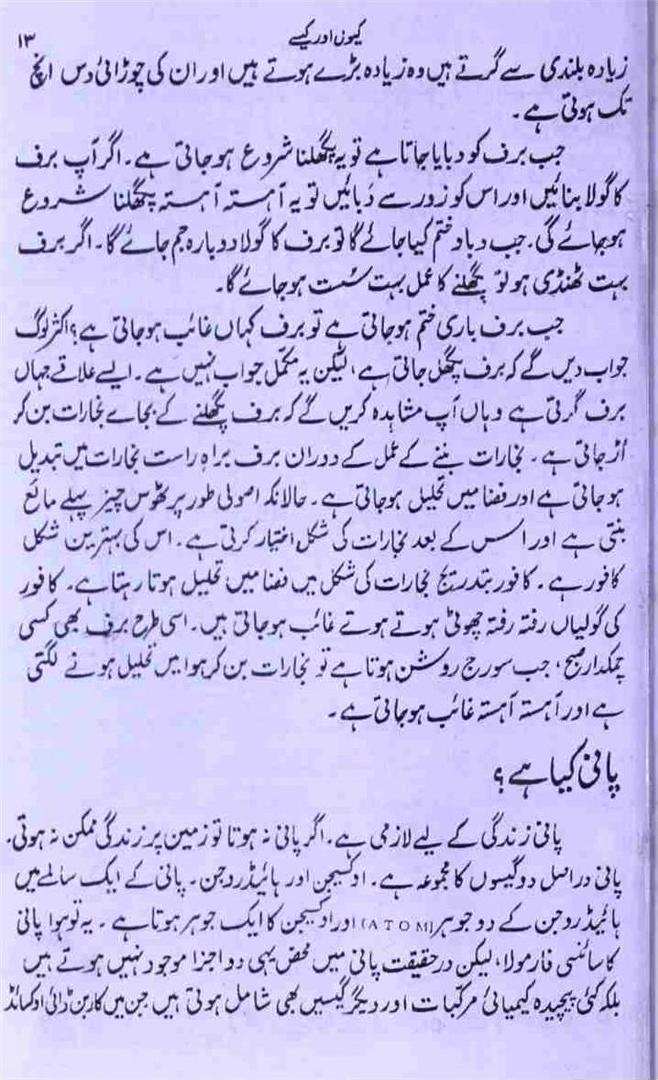 ۱۳
کیوں اور کیسے
زیادہ بلندی سے گرتے ہیں وہ زیادہ بڑے ہوتے ہیں اور ان کی چوڑائی دس انچ
تک ہوتی ہے۔
جب برف کو دبایا جاتا ہے تو یہ پگھلنا شروع ہوجاتی ہے۔ اگر آپ برف
کا گولا بنائیں اور اس کو زور سے دبائیں تو یہ آہستہ آہستہ پگھلنا شروع
ہوجائے گی۔ جب دباؤ ختم کیا جائے گا تو برف کا گولا دوبارہ جم جائے گا۔ اگر برف
بہت ٹھنڈی ہو تو پگھلنے کا عمل بہت سُست ہوجائے گا۔
جب برف باری ختم ہوجاتی ہے تو برف کہاں غائب ہوجاتی ہے؟ اکثر لوگ
جواب دیں گے کہ برف پگھل جاتی ہے، لیکن یہ مکمل جواب نہیں ہے۔ ایسے علاقے جہاں
برف گرتی ہے وہاں آپ مشاہدہ کریں گے کہ برف پگھلنے کے بجاے بخارات بن کر
اُڑ جاتی ہے۔ بخارات بننے کے عمل کے دوران برف براہِ راست بخارات میں تبدیل
ہوجاتی ہے اور فضا میں تحلیل ہوجاتی ہے۔ حالانکہ اصولی طور پر ٹھوس چیز پہلے مائع
بنتی ہے اور اس کے بعد بخارات کی شکل اختیار کرتی ہے۔ اس کی بہترین شکل
کافور ہے۔ کافور بتدریج بخارات کی شکل میں فضا میں تحلیل ہوتا رہتا ہے۔ کافور
کی گولیاں رفتہ رفتہ چھوٹی ہوتے ہوتے غائب ہوجاتی ہیں۔ اسی طرح برف بھی کسی
چمکدار صبح، جب سورج روشن ہوتا ہے تو بخارات بن کر ہوا میں تحلیل ہونے لگتی
ہے اور آہستہ آہستہ غائب ہوجاتی ہے۔
پانی کیا ہے؟
پانی زندگی کے لیے لازمی ہے۔ اگر پانی نہ ہوتا تو زمین پر زندگی ممکن نہ ہوتی۔
پانی دراصل دو گیسوں کا مجموعہ ہے۔ اوکسیجن اور ہائیڈروجن۔ پانی کے ایک سالمے میں
ہائیڈروجن کے دو جوہر (ATOM) اور اوکسیجن کا ایک جوہر ہوتا ہے۔ یہ تو ہوا پانی
کا سائنسی فارمولا، لیکن درحقیقت پانی میں محض یہی دو اجزا موجود نہیں ہوتے ہیں
بلکہ کئی پیچیدہ کیمیائی مرکبات اور دیگر گیسیں بھی شامل ہوتی ہیں جن میں کاربن ڈائی اوکسائڈ